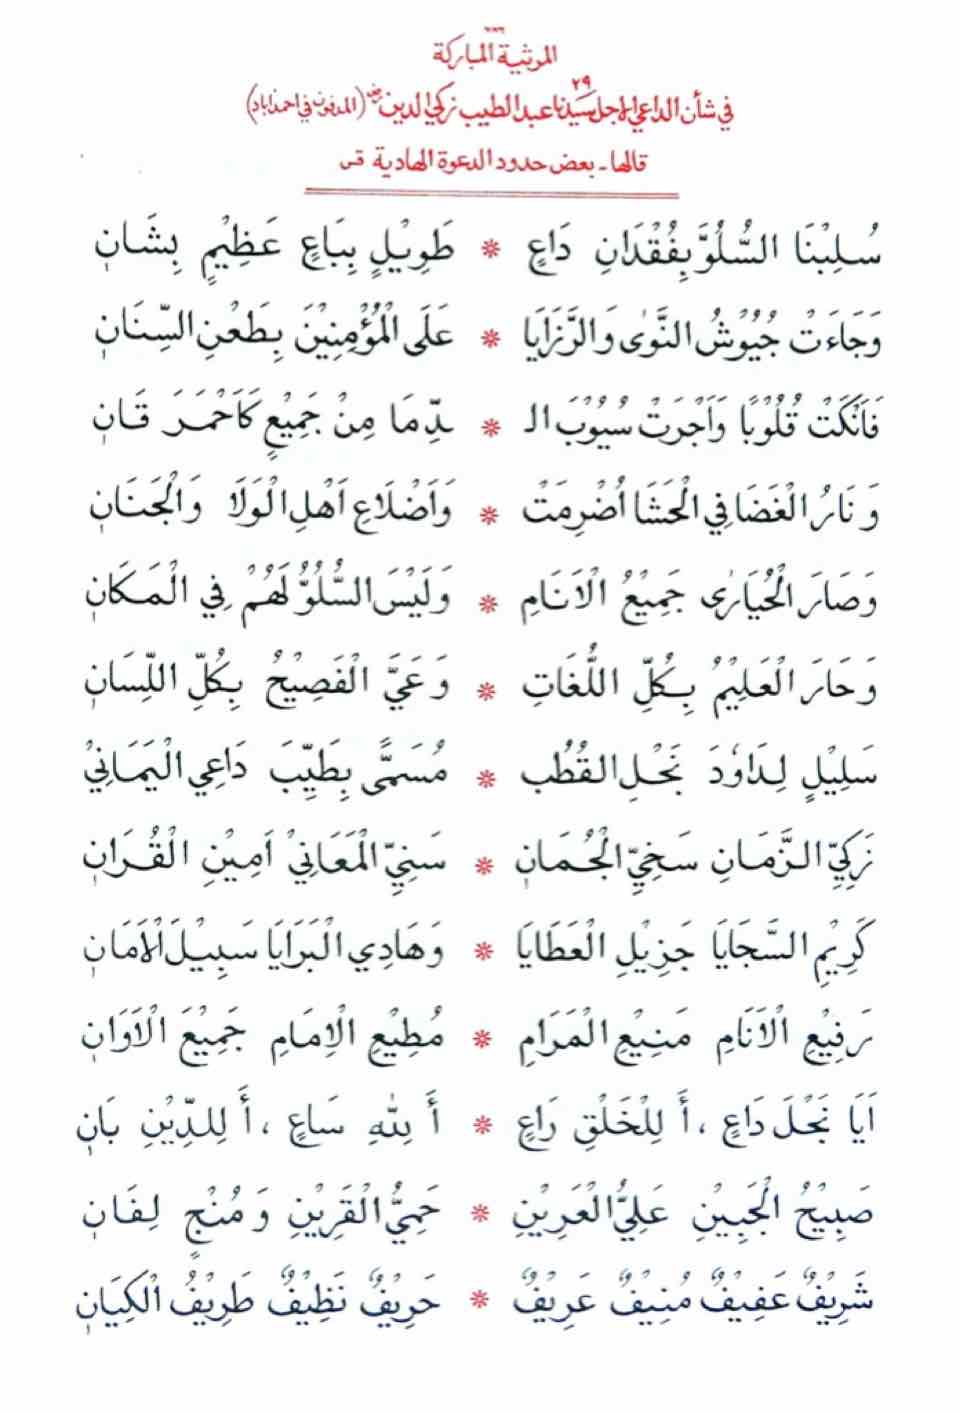 ٧٨٦
المرثية المباركة
في شأن الداعي الاجل سيدنا عبد الطيب زكي الدين رضه ٢٩ (المدفون في احمداباد)
قالها - بعض حدود الدعوة الهادية قس
سُلِبْنَا السُّلُوَّ بِفُقْدَانِ دَاعٍ * طَوِيْلٍ بِبَاعٍ عَظِيْمٍ بِشَانِ
وَجَاءَتْ جُيُوْشُ النَّوٰى وَالرَّزَايَا * عَلَى الْمُؤْمِنِيْنَ بِطَعْنِ السِّنَانِ
فَاَنْكَتْ قُلُوْبًا وَاَجْرَتْ سُيُوْبَ الـ * ـدِّمَا مِنْ جَمِيْعٍ كَاَحْمَرَ قَانِ
وَنَارُ الْغَضَا فِي الْحَشَا اُضْرِمَتْ * وَاَضْلَاعِ اَهْلِ الْوَلَا وَالْجَنَانِ
وَصَارَ الْحُيَارٰى جَمِيْعُ الْاَنَامِ * وَلَيْسَ السُّلُوُّ لَهُمْ فِي الْمَكَانِ
وَحَارَ الْعَلِيْمُ بِكُلِّ اللُّغَاتِ * وَعَيَّ الْفَصِيْحُ بِكُلِّ اللِّسَانِ
سَلِيْلٍ لِدَاوٗدَ نَجْلِ القُطُب * مُسَمًّى بِطَيِّبَ دَاعِي الْيَمَانِيْ
زَكِيِّ الزَّمَانِ سَخِيِّ الْجُمَانِ * سَنِيِّ الْمَعَانِيْ اَمِيْنِ الْقُرَانِ
كَرِيْمِ السَّجَايَا جَزِيْلِ الْعَطَايَا * وَهَادِي الْبَرَايَا سَبِيْلَ الْاَمَانِ
رَفِيْعِ الْاَنَامِ مَنِيْعِ الْمَرَامِ * مُطِيْعِ الْاِمَامِ جَمِيْعَ الْاَوَانِ
اَيَا نَجْلَ دَاعٍ ، أَ لِلْخَلْقِ رَاعٍ * أَ لِلّٰهِ سَاعٍ ، أَ لِلدِّيْنِ بَانِ
صَبِيْحُ الْجَبِيْنِ عَلِيُّ الْعَرِيْنِ * حَمِيُّ الْقَرِيْنِ وَمُنْجٍ لِفَانِ
شَرِيْفٌ عَفِيْفٌ مُنِيْفٌ عَرِيْفٌ * حَرِيْفٌ نَظِيْفٌ طَرِيْفُ الْكِيَانِ